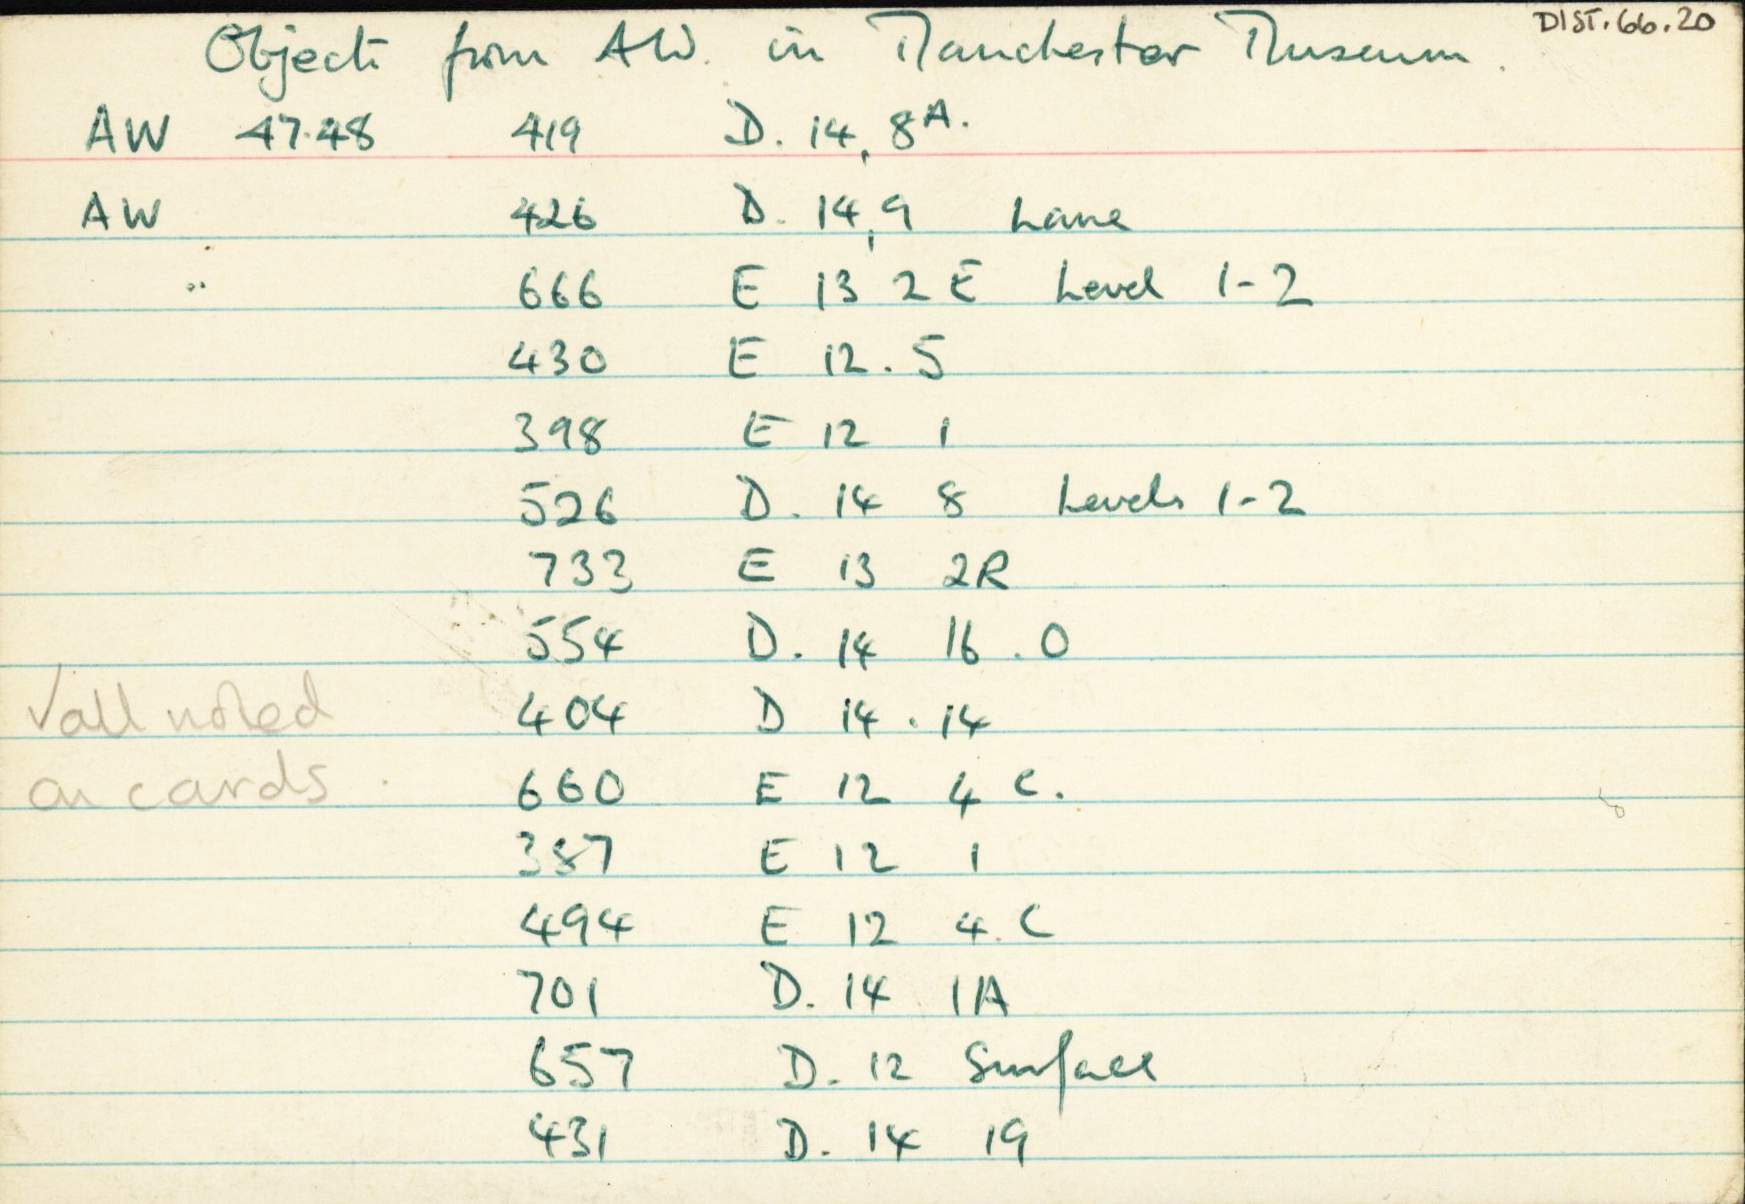 DIST.66.20
Objects from AW. in Manchester Museum.
AW 47.48 419 D. 14, 8A.
AW 426 D. 14, 9 Lane
" 666 E 13 2 E Level 1-2
430 E 12. 5
398 E 12 1
526 D. 14 8 Levels 1-2
733 E 13 2R
554 D. 14 16. O
√all noted
404 D 14. 14
on cards.
660 E 12 4 C.
387 E 12 1
494 E 12 4. C
701 D. 14 1A
657 D. 12 Surface
431 D. 14 19